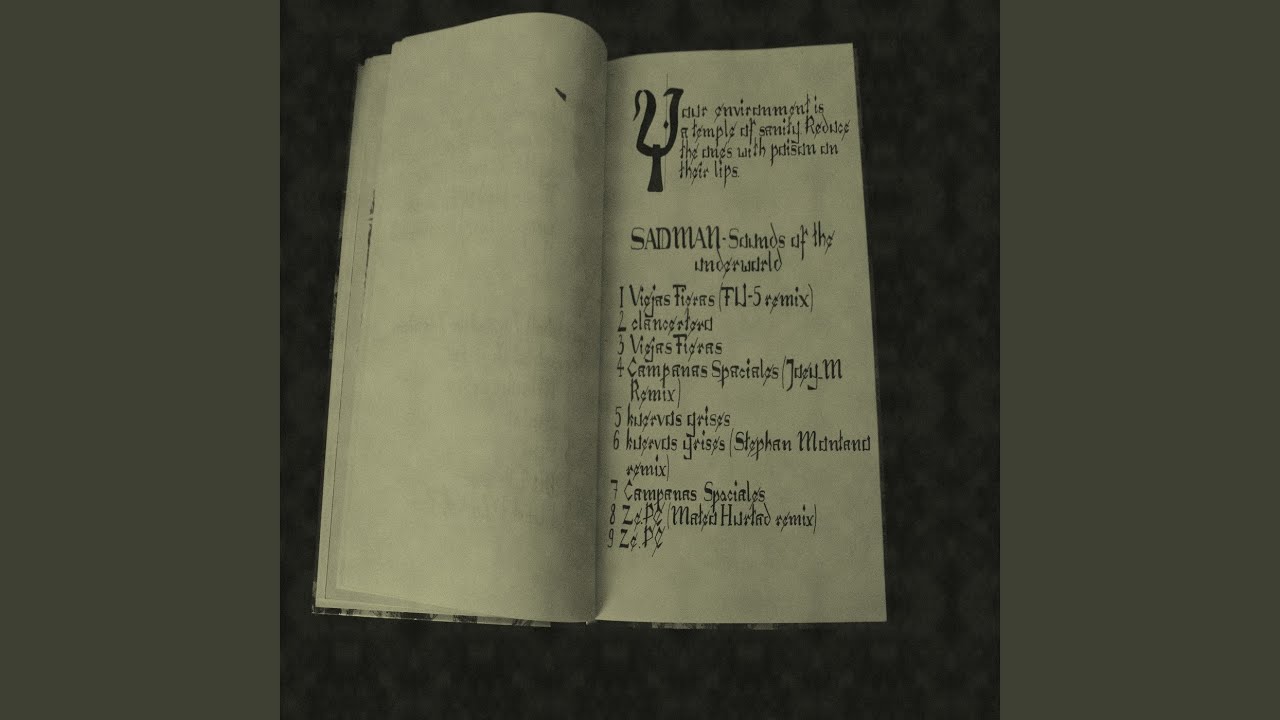 Your environment is
a temple of sanity Reduce
the ones with poison on
their lips.
SADMAN - Sounds of the
underworld
1 Viejas Fieras (FLU-5 remix)
2 clancestero
3 Viejas Fieras
4 Campanas Spaciales (Joey_M
Remix)
5 kuervos grises
6 kuervos grises (Stephan Montano
remix)
7 Campanas Spaciales
8 Ze.PE (Mateo Hurtad remix)
9 Ze.PE